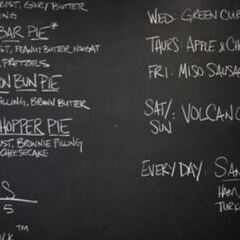 UST, GOOEY BUTTER
ING
BAR PIE*
UST, PEANUT BUTTER NOUGAT
PRETZELS
ON BUN PIE
FILLING, BROWN BUTTER
HOPPER PIE
UST, BROWNIE FILLING
CHEESECAKE
S
5
TM
WED: GREEN CUR
THURS: APPLE & CH
FRI: MISO SAUSA
SAT/
SUN : VOLCANO
EVERY DAY: SAN
HAM
TURK